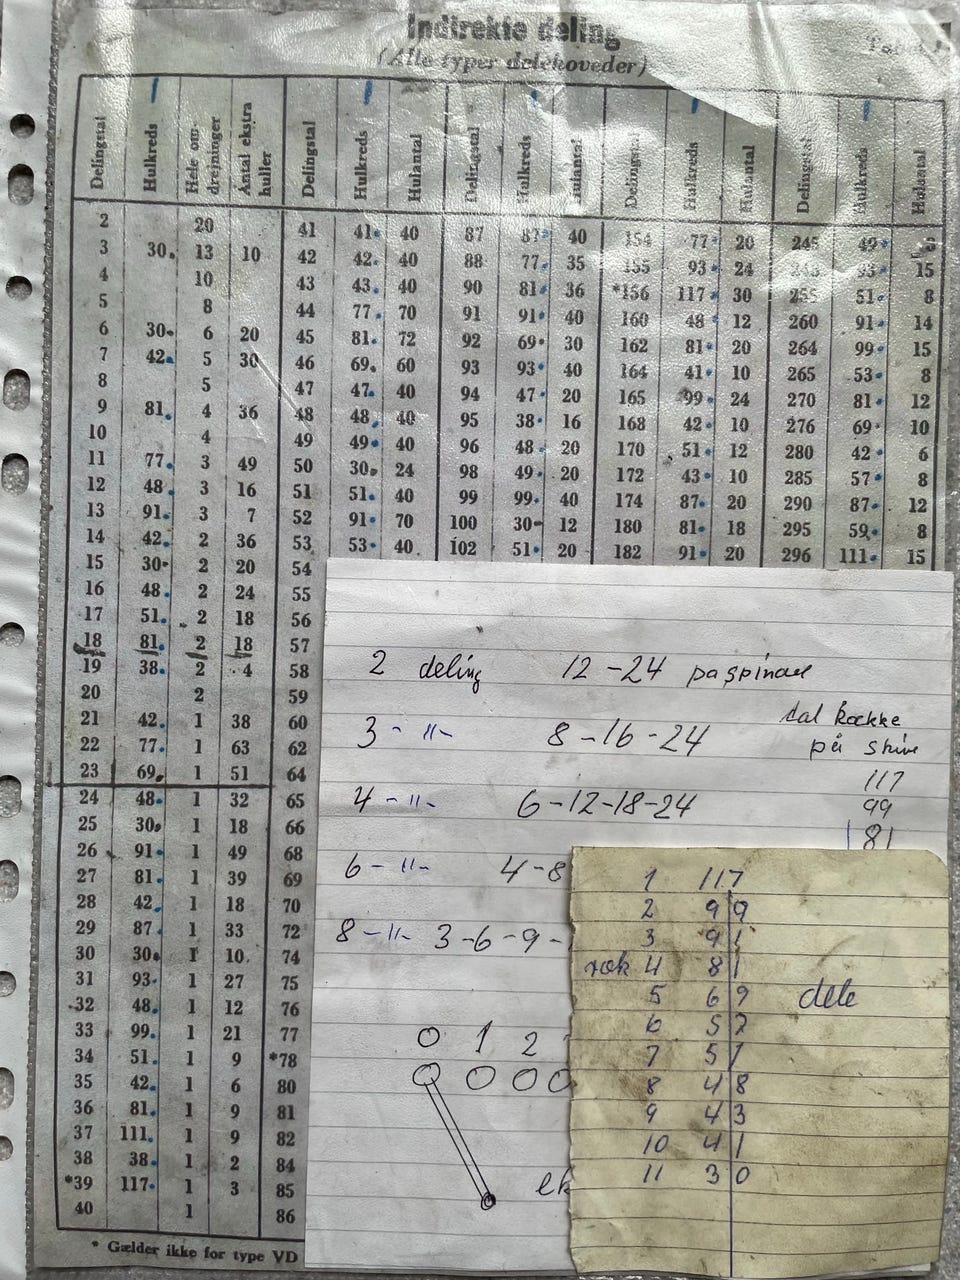 Indirekte deling
(Alle typer delehoveder)
Delingstal Hulkreds Hele om-drejninger Antal ekstra huller Delingstal Hulkreds Hulantal Delingstal Hulkreds Hulantal Delingstal Hulkreds Hulantal Delingstal Hulkreds Hulantal
2 20 41 41 40 87 87 40 154 77 20 245 49
3 30 13 10 42 42 40 88 77 35 155 93 24 15
4 10 43 43 40 90 81 36 *156 117 30 255 51 8
5 8 44 77 70 91 91 40 160 48 12 260 91 14
6 30 6 20 45 81 72 92 69 30 162 81 20 264 99 15
7 42 5 30 46 69 60 93 93 40 164 41 10 265 53 8
8 5 47 47 40 94 47 20 165 99 24 270 81 12
9 81 4 36 48 48 40 95 38 16 168 42 10 276 69 10
10 4 49 49 40 96 48 20 170 51 12 280 42 6
11 77 3 49 50 30 24 98 49 20 172 43 10 285 57 8
12 48 3 16 51 51 40 99 99 40 174 87 20 290 87 12
13 91 3 7 52 91 70 100 30 12 180 81 18 295 59 8
14 42 2 36 53 53 40 102 51 20 182 91 20 296 111 15
15 30 2 20 54
16 48 2 24 55
17 51 2 18 56
18 81 2 18 57
19 38 2 4 58
20 2 59
21 42 1 38 60
22 77 1 63 62
23 69 1 51 64
24 48 1 32 65
25 30 1 18 66
26 91 1 49 68
27 81 1 39 69
28 42 1 18 70
29 87 1 33 72
30 30 1 10 74
31 93 1 27 75
32 48 1 12 76
33 99 1 21 77
34 51 1 9 *78
35 42 1 6 80
36 81 1 9 81
37 111 1 9 82
38 38 1 2 84
*39 117 1 3 85
40 1 86
* Gælder ikke for type VD
2 deling 12-24 på spinael
3 - 11 - 8-16-24
4 - 11 - 6-12-18-24
6 - 11 - 4-8
8 - 11 - 3-6-9-
tal
på skive
117
99
81
0 1 2
0 0 0 0
ek
1 117
2 99
3 91
rok 4 81
5 69
6 57
7 51
8 48
9 43
10 41
11 30
dele